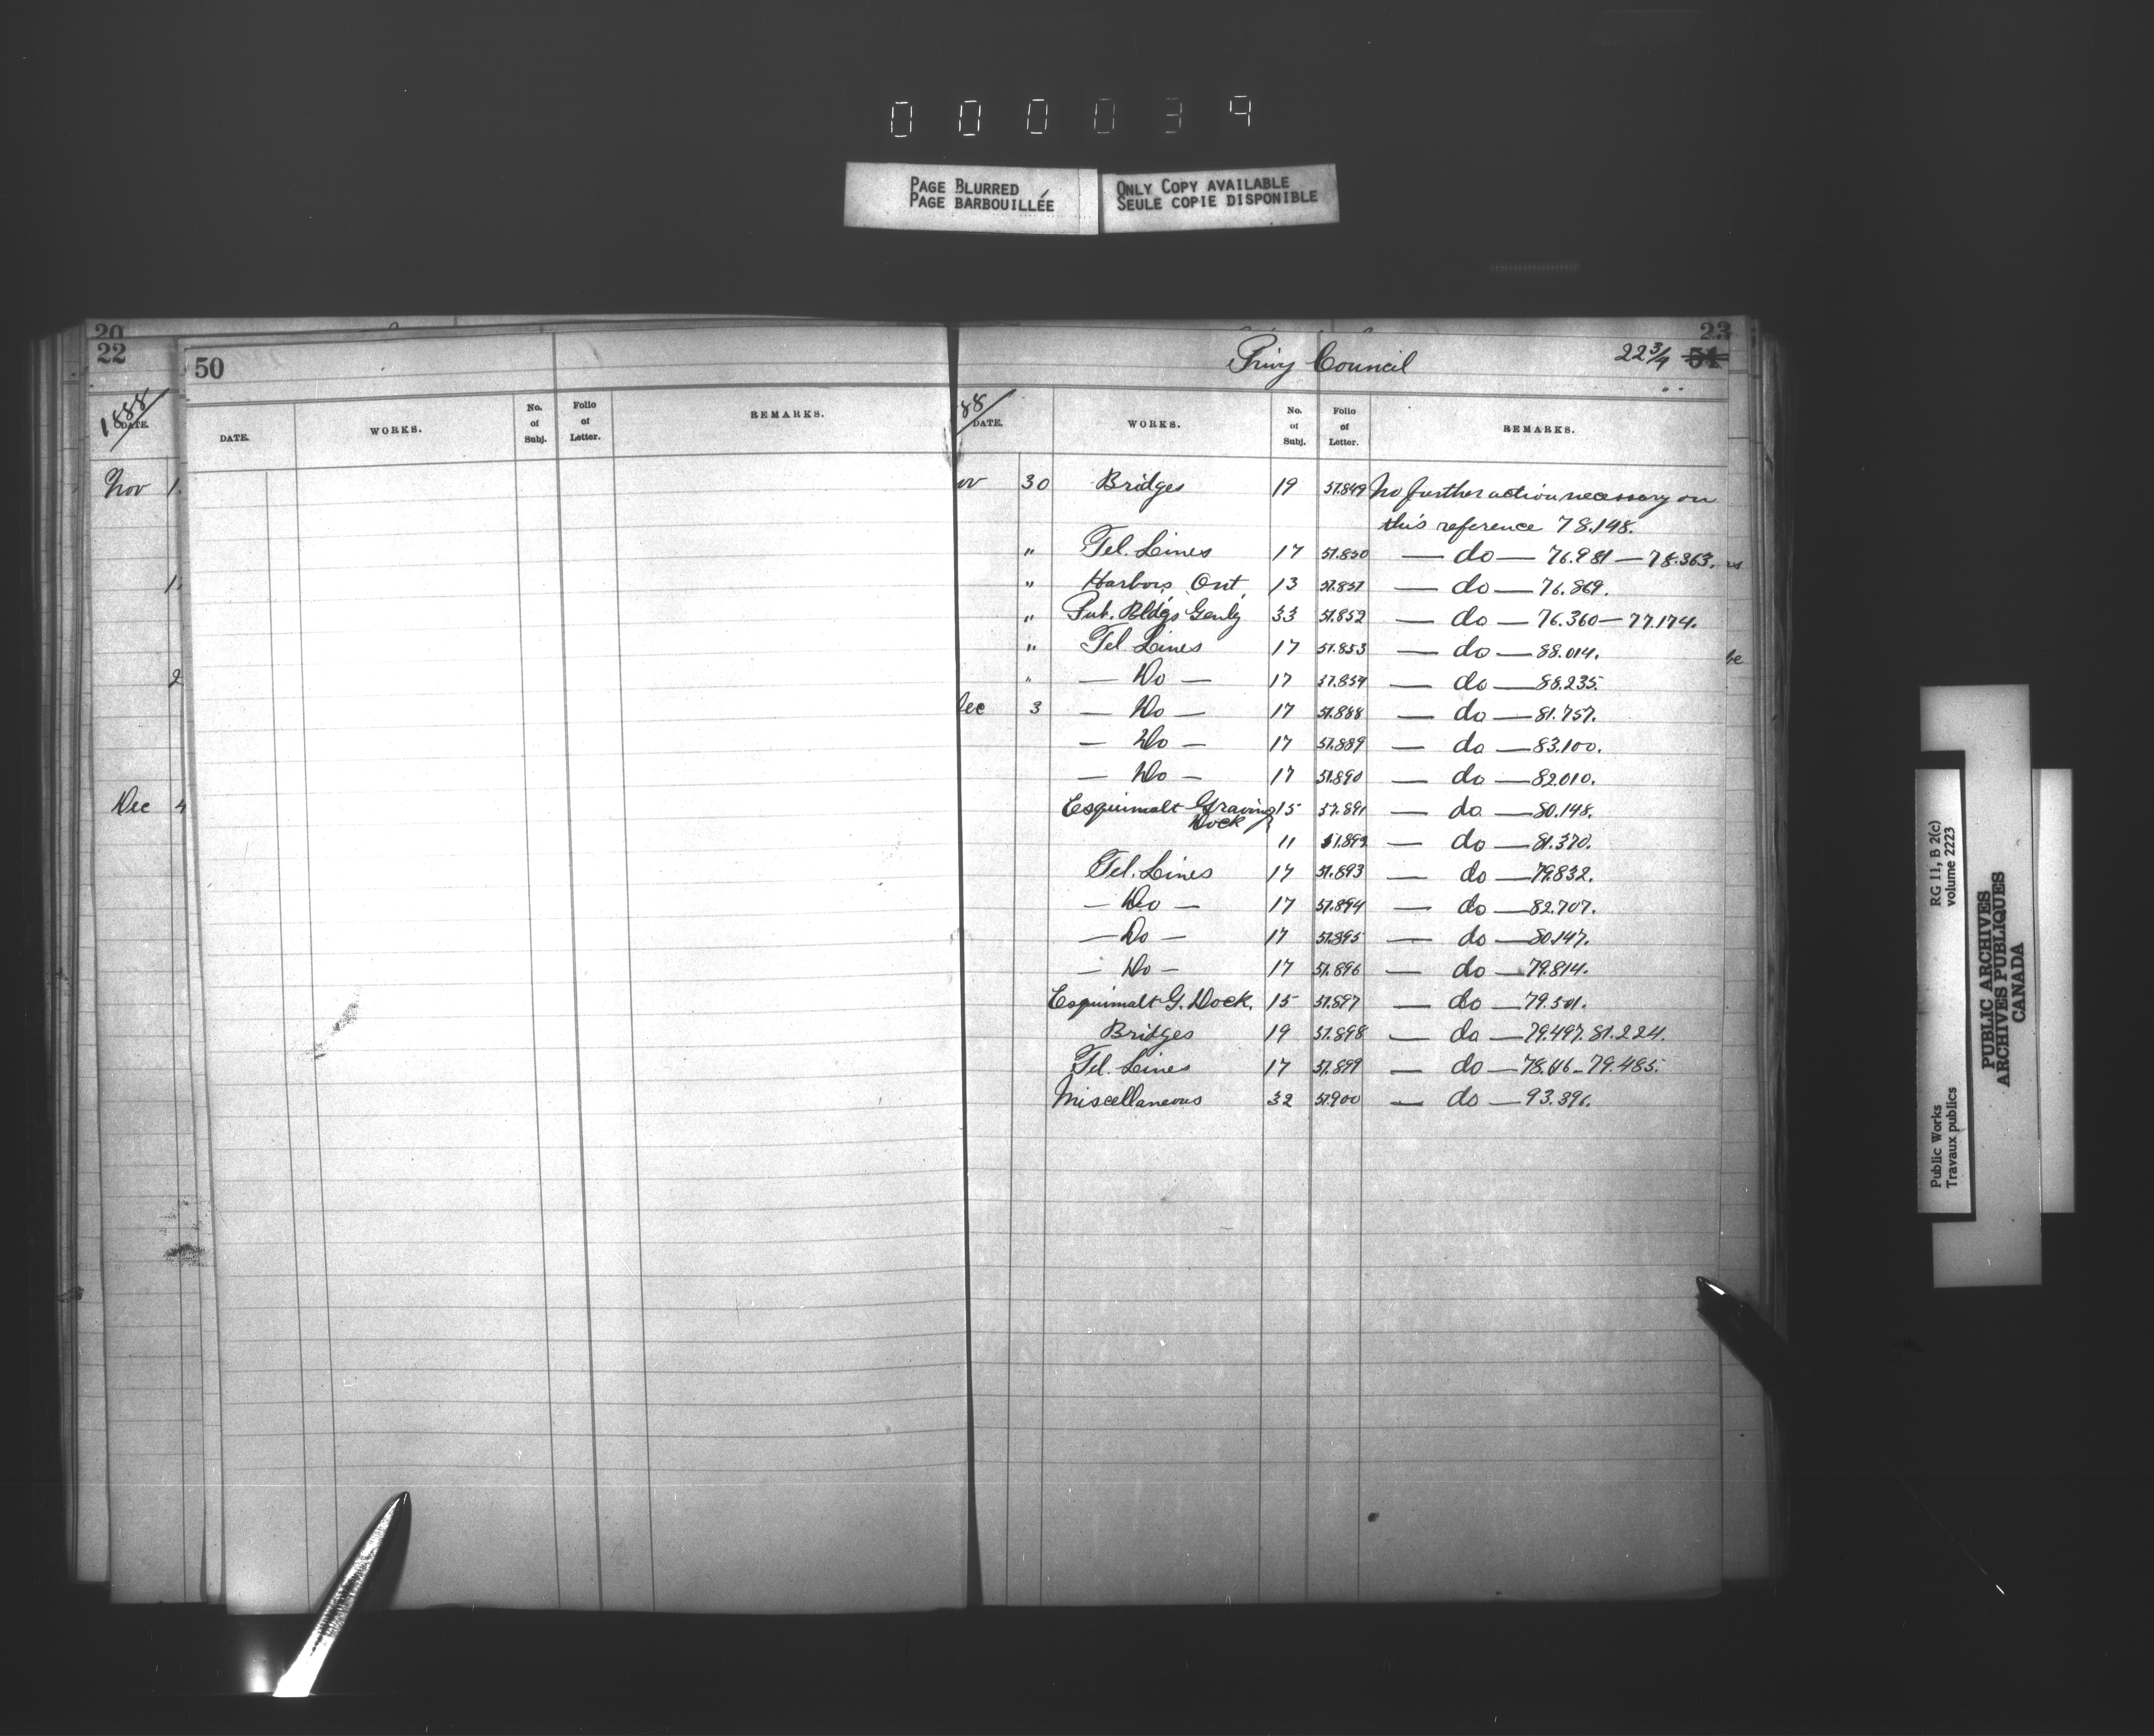 000039
PAGE BLURRED
PAGE BARBOUILLÉE
ONLY COPY AVAILABLE
SEULE COPIE DISPONIBLE
20
22
1888
DATE.
Nov 1
1
2
Dec 4
50
DATE. WORKS. No. of Subj. Folio of Letter. REMARKS.
23
Privy Council 22 3/4 51
88
DATE. WORKS. No. of Subj. Folio of Letter. REMARKS.
ov 30 Bridges 19 57.849 No further action necessary on
this reference 78.148.
" Tel. Lines 17 57.850 — do — 76.981 — 78.363.
" Harbors, Ont. 13 57.851 — do — 76.869.
" Pub. Bldgs Genly 33 57.852 — do — 76.360 — 77.174.
" Tel. Lines 17 57.853 — do — 88.014.
" — Do — 17 57.854 — do — 88.235.
Dec 3 — Do — 17 57.888 — do — 81.757.
— Do — 17 57.889 — do — 83.100.
— Do — 17 57.890 — do — 82010.
Esquimalt Graving Dock 15 57.891 — do — 80.148.
11 57.892 — do — 81.370.
Tel. Lines 17 57.893 — do — 79.832.
— Do — 17 57.894 — do — 82.707.
— Do — 17 57.895 — do — 80.147.
— Do — 17 57.896 — do — 79.814.
Esquimalt G. Dock. 15 57.897 — do — 79.501.
Bridges 19 57.898 — do — 79.497. 81.224.
Tel. Lines 17 57.899 — do — 79.485.
Miscellaneous 32 57.900 — do — 93.396.
RG 11, B 2(c)
volume 2223
Public Works
Travaux publics
PUBLIC ARCHIVES
ARCHIVES PUBLIQUES
CANADA